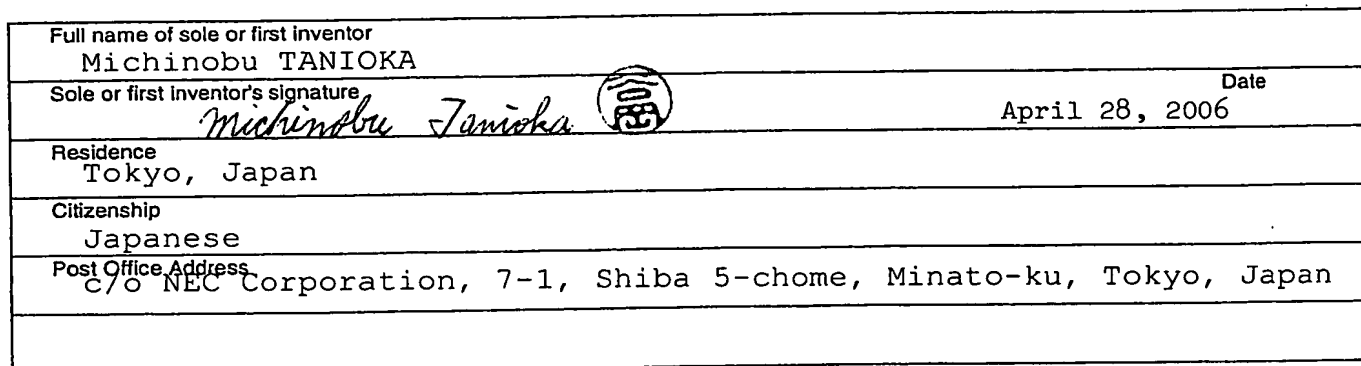 Full name of sole or first inventor
Michinobu TANIOKA
Sole or first inventor's signature
Michinobu Tanioka
Date
April 28, 2006
Residence
Tokyo, Japan
Citizenship
Japanese
Post Office Address
c/o NEC Corporation, 7-1, Shiba 5-chome, Minato-ku, Tokyo, Japan